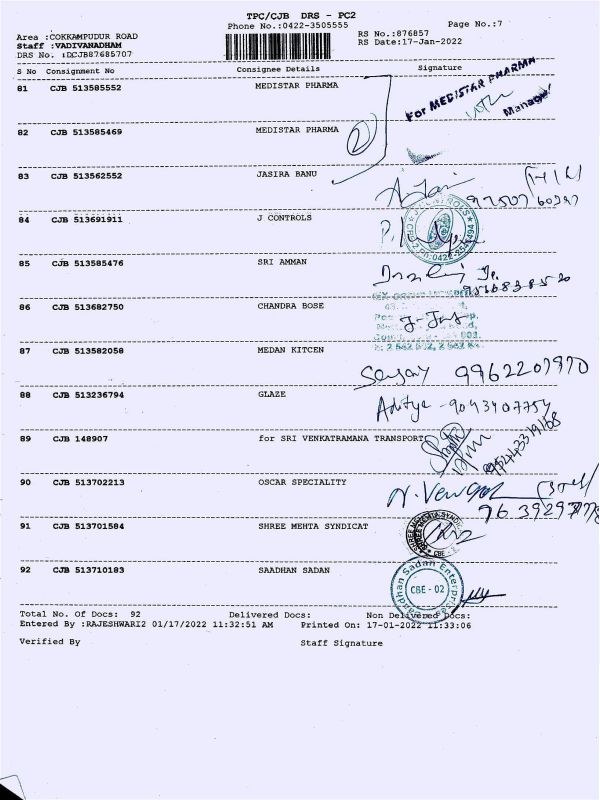 TPC/CJB DRS - PC2
Phone No.:0422-3505555
Page No.:7
Area :COKKAMPUDUR ROAD
RS No.:876857
Staff :VADIVANADHAM
RS Date:17-Jan-2022
DRS No. :DCJB87685707
S No Consignment No Consignee Details Signature
81 CJB 513585552 MEDISTAR PHARMA
For MEDISTAR PHARMA
Manager
82 CJB 513585469 MEDISTAR PHARMA
2
83 CJB 513562552 JASIRA BANU
84 CJB 513691911 J CONTROLS
85 CJB 513585476 SRI AMMAN
86 CJB 513682750 CHANDRA BOSE
87 CJB 513582058 MEDAN KITCEN
88 CJB 513236794 GLAZE
Aditya - 9043407754
89 CJB 148907 for SRI VENKATRAMANA TRANSPORT
90 CJB 513702213 OSCAR SPECIALITY
91 CJB 513701584 SHREE MEHTA SYNDICAT
SHREE MEHTA SYNDICATE
92 CJB 513710183 SAADHAN SADAN
Saadhan Sadan Enterprises
CBE - 02
Total No. Of Docs: 92 Delivered Docs: Non Delivered Docs:
Entered By :RAJESHWARI2 01/17/2022 11:32:51 AM Printed On: 17-01-2022 11:33:06
Verified By Staff Signature